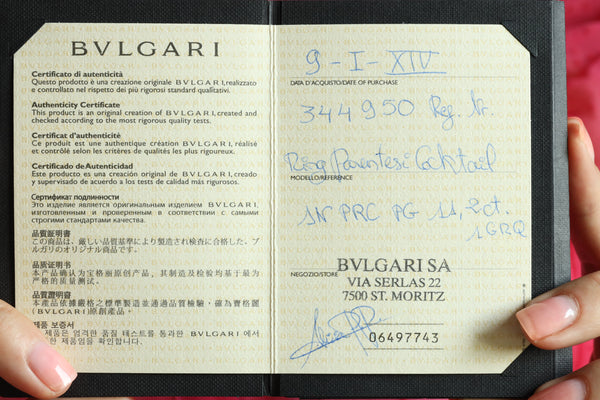 BVLGARI
Certificato di autenticità
Questo prodotto è una creazione originale BVLGARI, realizzato
e controllato nel rispetto dei più rigorosi standard qualitativi.
Authenticity Certificate
This product is an original creation of BVLGARI, created and
checked according to the most rigorous quality tests.
Certificat d'authenticité
Ce produit est une authentique création BVLGARI, réalisé
et contrôlé selon les critères de qualités les plus rigoureux.
Certificado de Autenticidad
Este producto es una creación original de BVLGARI, creado
y supervisado de acuerdo a los tests de calidad más rigurosos.
Сертификат подлинности
Это изделие является оригинальным изделием BVLGARI,
изготовленным и проверенным в соответствии с самыми
строгими стандартами качества.
品質証明書
この商品は、厳しい品質基準により製造され検査に合格した、ブ
ルガリのオリジナル商品です。
品质证明书
本产品确认为宝格丽原创产品，其制造及检验均基于最为
严格的质量测试。
品質證明書
本產品依據嚴格之標準製造並通過品質檢驗，確為寶格麗
(BVLGARI)原創產品。
제품 보증서
제품은 엄격한 품질 테스트를 통과한 BVLGARI 에서
한 제품임을 확인합니다.
9-I-XIV
DATA D'ACQUISTO/DATE OF PURCHASE
344950 Reg. Nr.
Ring Parentesi Cocktail
MODELLO/REFERENCE
1N PRC PG 11,2 ct.
1GRQ
NEGOZIO/STORE
BVLGARI SA
VIA SERLAS 22
7500 ST. MORITZ
06497743